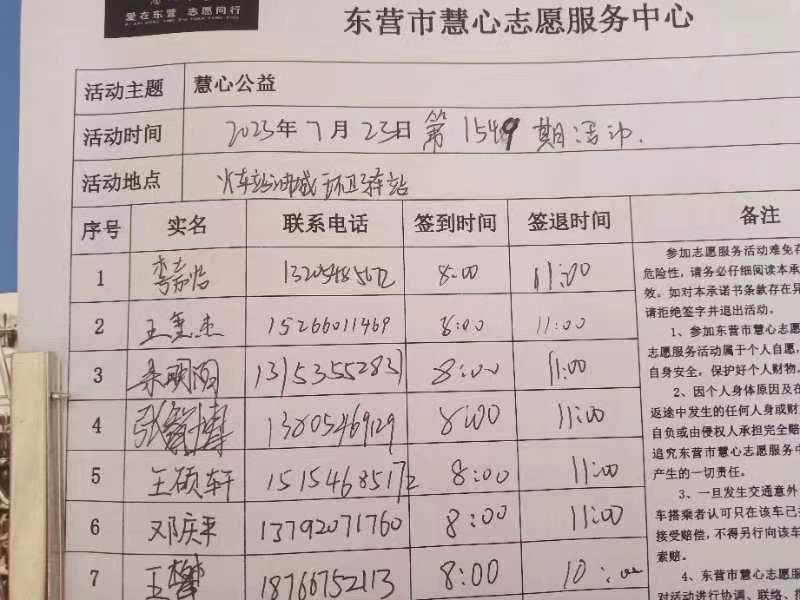 爱在东营 志愿同行
东营市慧心志愿服务中心
活动主题 慧心公益
活动时间 2023年7月23日 第1549期活动.
活动地点 火车站油城环卫驿站
序号 实名 联系电话 签到时间 签退时间 备注
1 李嘉怡 8:00 11:00
2 15266011469 8:00 11:00
3 13153552837 8:00 11:00
4 13805469129 8:00 11:00
5 王硕轩 15154685172 8:00 11:00
6 邓庆来 13792071760 8:00 11:00
7 王 18766752113 8:00 10:00
参加志愿服务活动难免存
危险性，请务必仔细阅读本承
效。如对本承诺书条款存在异
请拒绝签字并退出活动。
1、参加东营市慧心志愿
志愿服务活动属于个人自愿，
自身安全，保护好个人财物。
2、因个人身体原因及在
返途中发生的任何人身或财
自负或由侵权人承担完全赔
追究东营市慧心志愿服务中
产生的一切责任。
3、一旦发生交通意外
车搭乘者认可只在该车已
接受赔偿，不得另行向该车
索赔。
4、东营市慧心志愿服
对活动进行协调、联络、